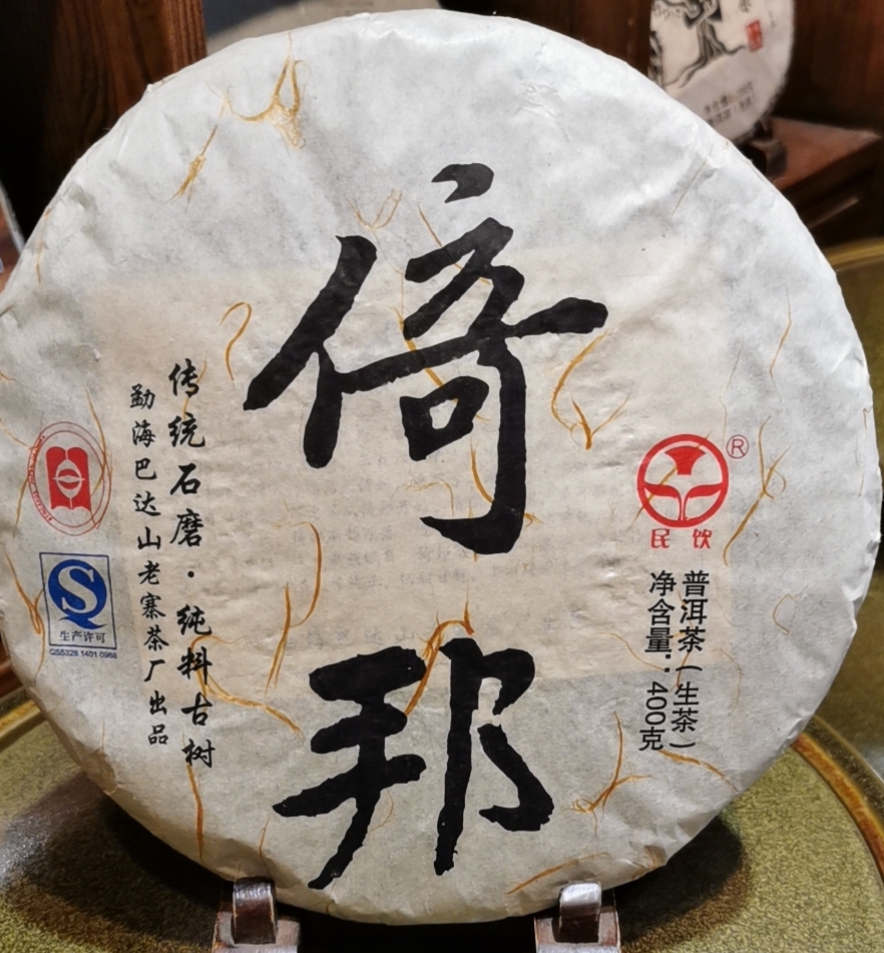 倚邦
民饮
®
普洱茶（生茶）
净含量：400克
传统石磨·纯料古树
勐海巴达山老寨茶厂出品
生产许可
QS5328 1401 0968